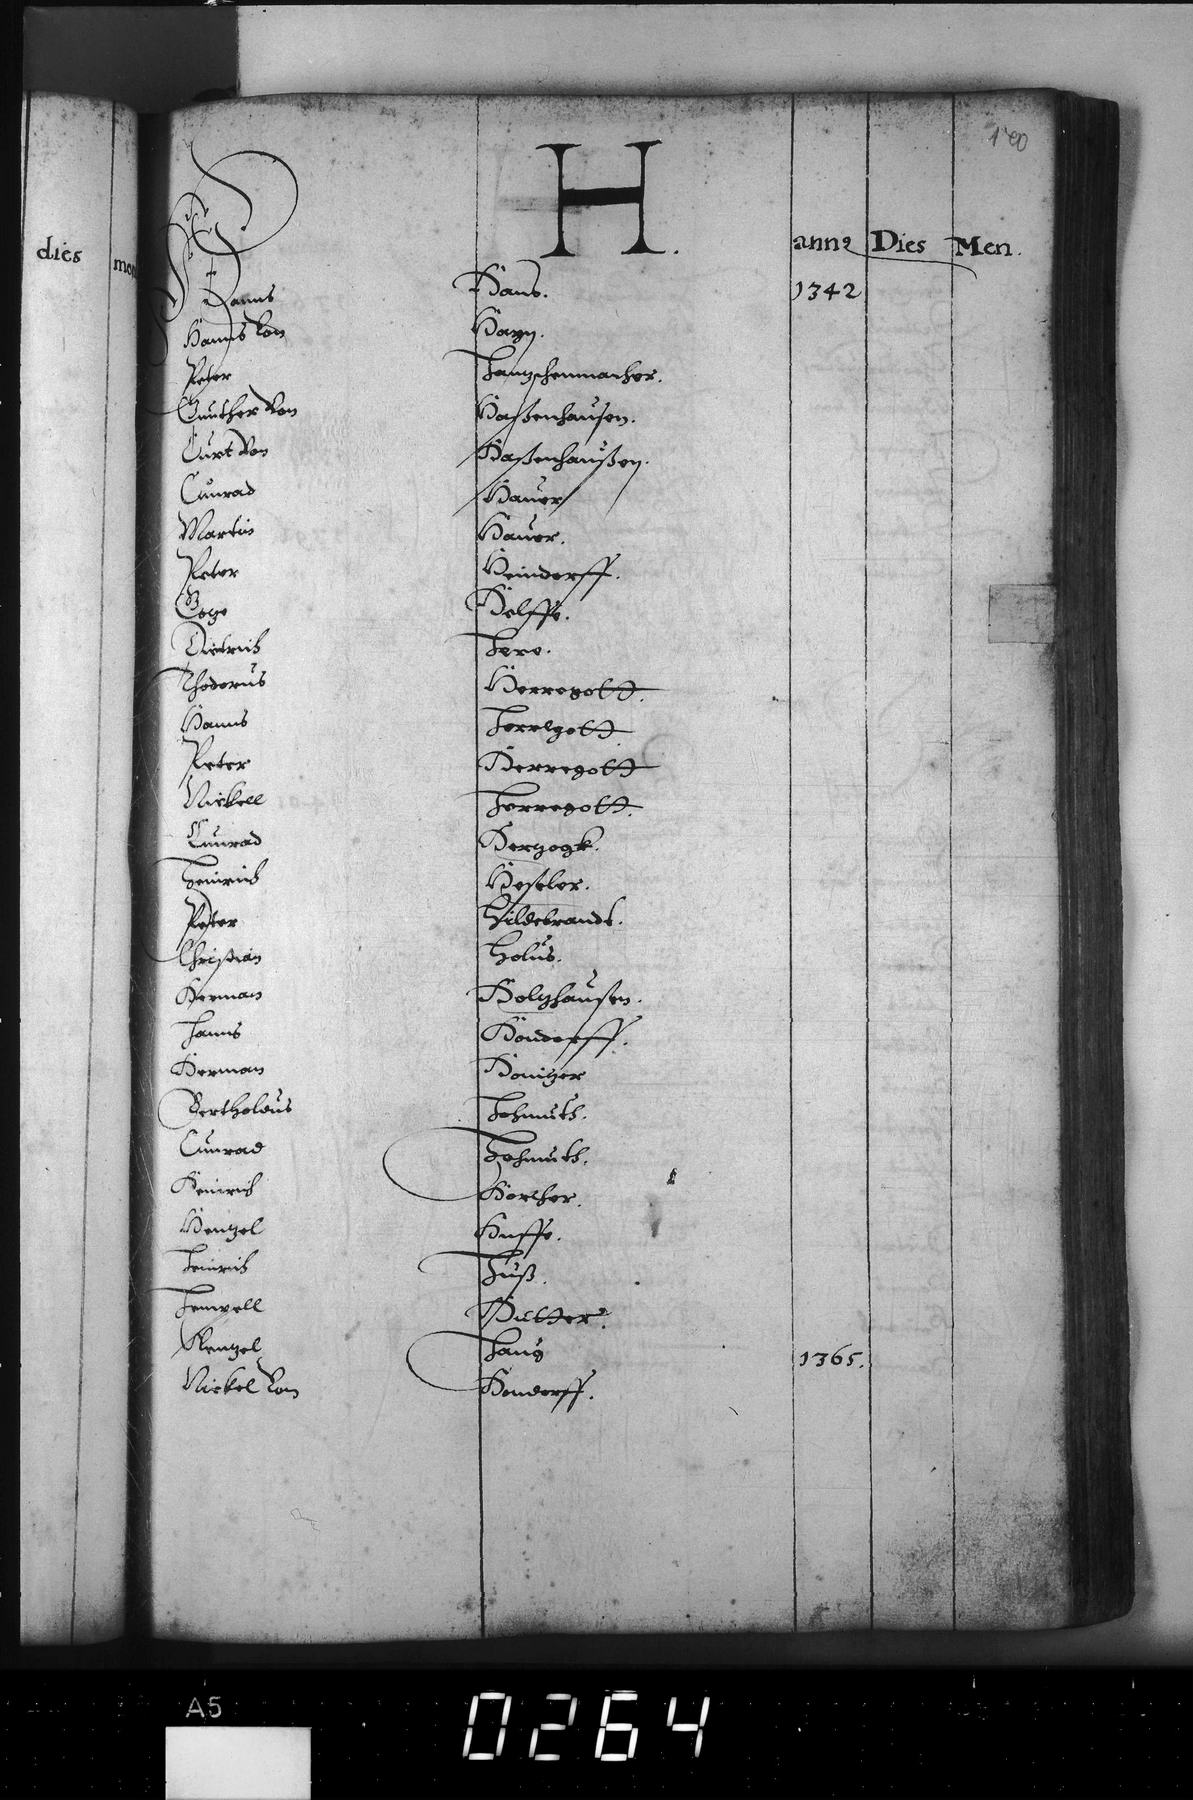 180
H.
dies
anno Dies Men.
Hanns Hans. 1342
Hanns Von Hayn.
Peter Hantzschenmacher.
Gunther Von Haßenhausen.
Curt Von Haßenhaußen.
Cunrad Hauer
Martin Hauer.
Peter Heindorff.
Helffe.
Dietrich Here.
Theodorus Herregott.
Hanns Herregott.
Peter Herregott
Nickell Herregott.
Cunrad Hertzogk.
Heinrich Heseler.
Peter Hildebrandt.
Christian Holus.
Herman Holtzhausen.
Hanns Hondorff.
Herman Honiger
Bertholdus Hohmuth.
Cunrad Hohmuth.
Heinrich Horcher.
Hentzel Huffe.
Heinrich Huß.
Hutter.
Hentzel 1365.
Nickel Von Hondorff.
A5
0264